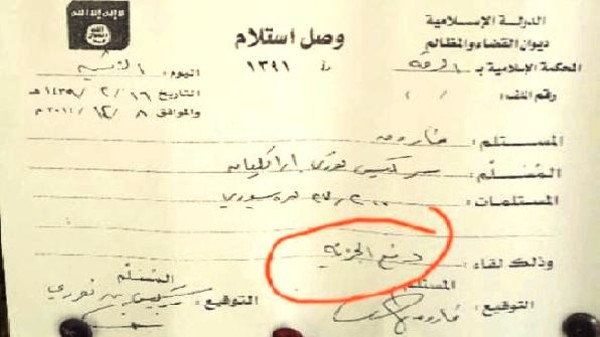 الدولة الإسلامية
ديوان القضاء والمظالم
المحكمة الإسلامية بـ الرقة
رقم الملف: / /
وصل استلام
١٣٩١
لا إله إلا الله
الله
رسول
محمد
اليوم:
التاريخ ١٦ / ٢ / ١٤٣٥هـ
والموافق ٨ / ١٢ / م
المستلم:
المُسَلّم: سركيس نوري اراكليان
المستلمات: سوري
وذلك لقاء: دفع الجزية
المستلم
التوقيع:
المُسَلّم
التوقيع: سركيس نوري